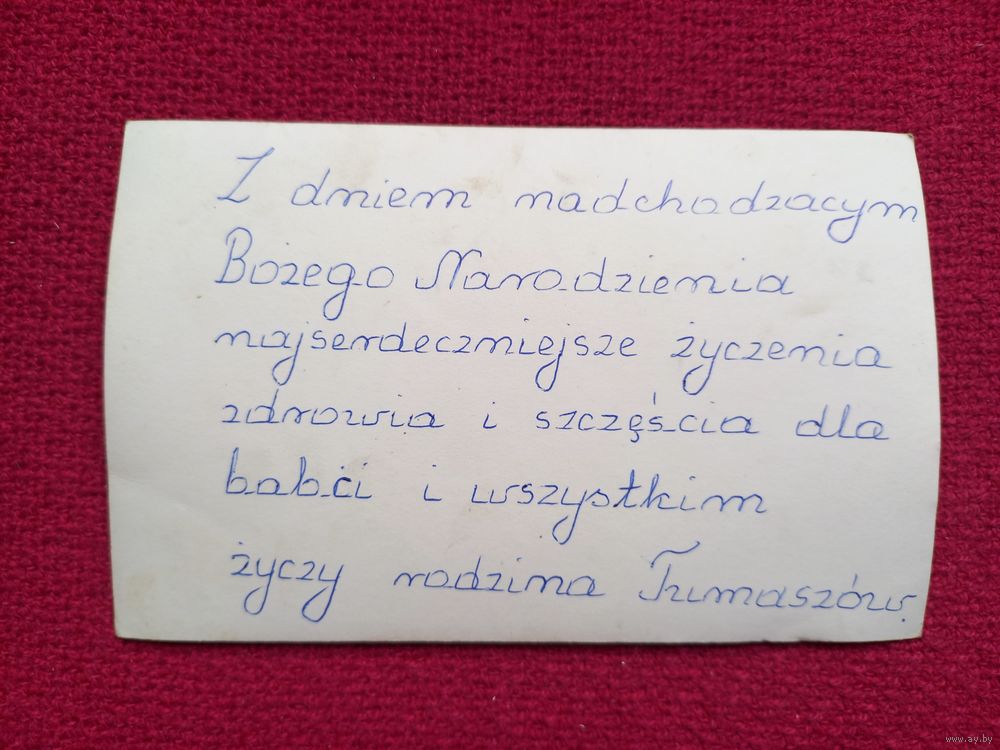 Z dniem nadchodzacym
Bożego Narodzienia
najserdeczniejsze życzenia
zdrowia i szczęścia dla
babċi i wszystkim
życzy rodzina Tumaszów.
www.ay.by